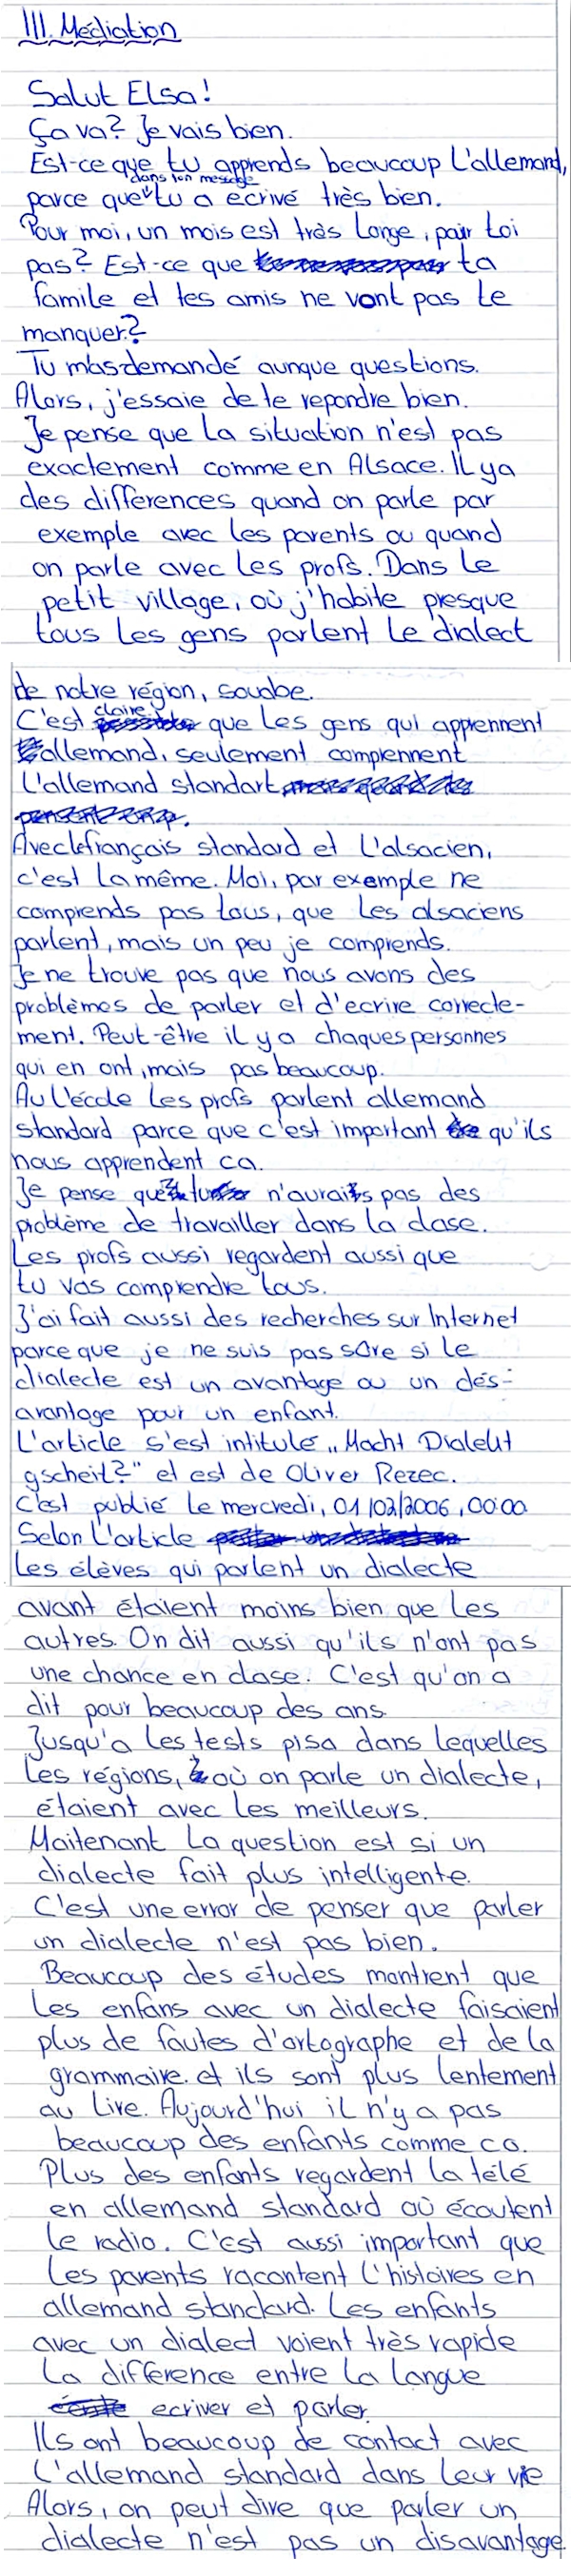 III. Médiation
Salut Elsa!
Ça va? Je vais bien.
Est-ce que tu apprends beaucoup l'allemand,
dans ton message
parce que tu a ecrivé très bien.
Pour moi, un mois est très longe, pour toi
pas? Est-ce que ta
famile et tes amis ne vont pas te
manquer?
Tu m'as demandé aunque questions.
Alors, j'essaie de te repondre bien.
Je pense que la situation n'est pas
exactement comme en Alsace. Il y a
des différences quand on parle par
exemple avec les parents ou quand
on parle avec les profs. Dans le
petit village, où j'habite presque
tous les gens parlent le dialect
de notre région, souabe.
claire
C'est que les gens qui apprennent
allemand, seulement comprennent
l'allemand standart
Avec le français standard et l'alsacien,
c'est la même. Moi, par exemple ne
comprends pas tous, que les alsaciens
parlent, mais un peu je comprends.
Je ne trouve pas que nous avons des
problèmes de parler et d'ecrire correcte-
ment. Peut-être il y a chaques personnes
qui en ont, mais pas beaucoup.
Au l'école les profs parlent allemand
standard parce que c'est important qu'ils
nous apprendent ca.
Je pense que tu n'aurais pas des
problème de travailler dans la clase.
Les profs aussi regardent aussi que
tu vas comprendre tous.
J'ai fait aussi des recherches sur Internet
parce que je ne suis pas sûre si le
dialecte est un avantage ou un dés-
avantage pour un enfant.
L'article s'est intitulé „Macht Dialekt
gscheit?" et est de Oliver Rezec.
C'est publié le mercredi, 01/02/2006, 00:00.
Selon l'article
les élèves qui parlent un dialecte
avant étaient moins bien que les
autres. On dit aussi qu'ils n'ont pas
une chance en clase. C'est qu'on a
dit pour beaucoup des ans.
Jusqu'a les tests pisa dans lequelles
les régions, où on parle un dialecte,
étaient avec les meilleurs.
Maitenant la question est si un
dialecte fait plus intelligente.
C'est une error de penser que parler
un dialecte n'est pas bien.
Beaucoup des études montrent que
les enfans avec un dialecte faisaient
plus de fautes d'ortographe et de la
grammaire. et ils sont plus lentement
au lire. Aujourd'hui il n'y a pas
beaucoup des enfants comme ca.
Plus des enfants regardent la télé
en allemand standard où écoutent
le radio. C'est aussi important que
les parents racontent l'histoires en
allemand standard. Les enfants
avec un dialect voient très rapide
la différence entre la langue
ecriver et parler.
Ils ont beaucoup de contact avec
l'allemand standard dans leur vie
Alors, on peut dire que parler un
dialecte n'est pas un disavantage